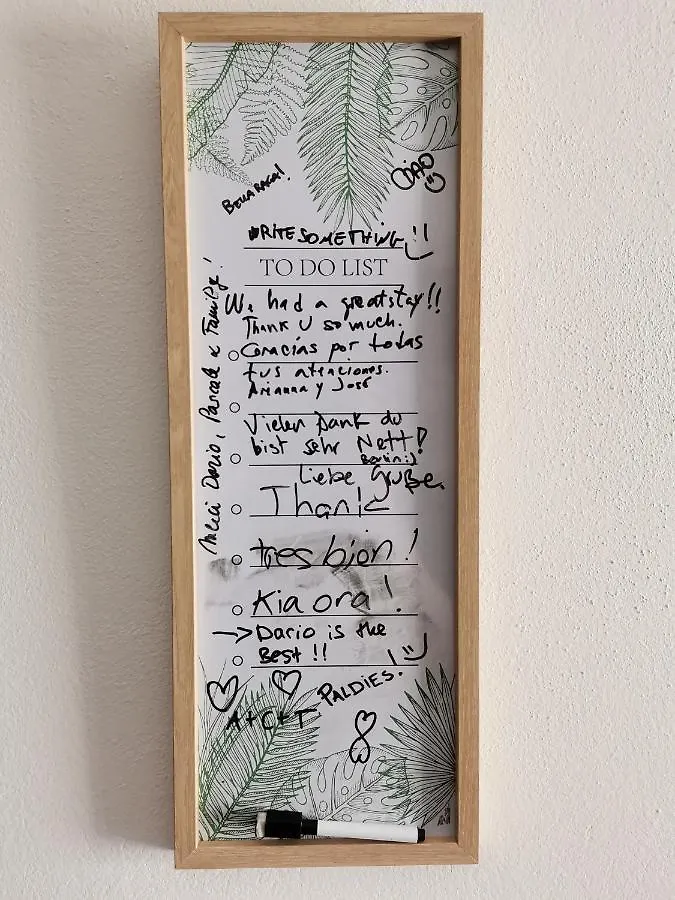 BELLA RAGA!
CIAO
WRITE SOMETHING!!
TO DO LIST
We had a great stay!!
Thank U so much.
Gracias por todas
tus atenciones.
Arianna y José
Vielen Dank du
bist sehr Nett!
Berlin:)
Liebe Grüße
Thank
tres bion!
Kia ora!
→ Dario is the
Best!!
PALDIES!
A+C+T
Merci Dario, Pascale & Family!